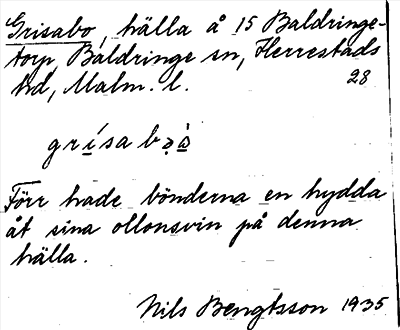 Grisabo, hälla å 15 Baldringe-
torp, Baldringe sn, Herrestads
hd, Malm. l. 28
grísabə̀ò
Förr hade bönderna en hydda
åt sina ollonsvin på denna
hälla.
Nils Bengtsson 1935